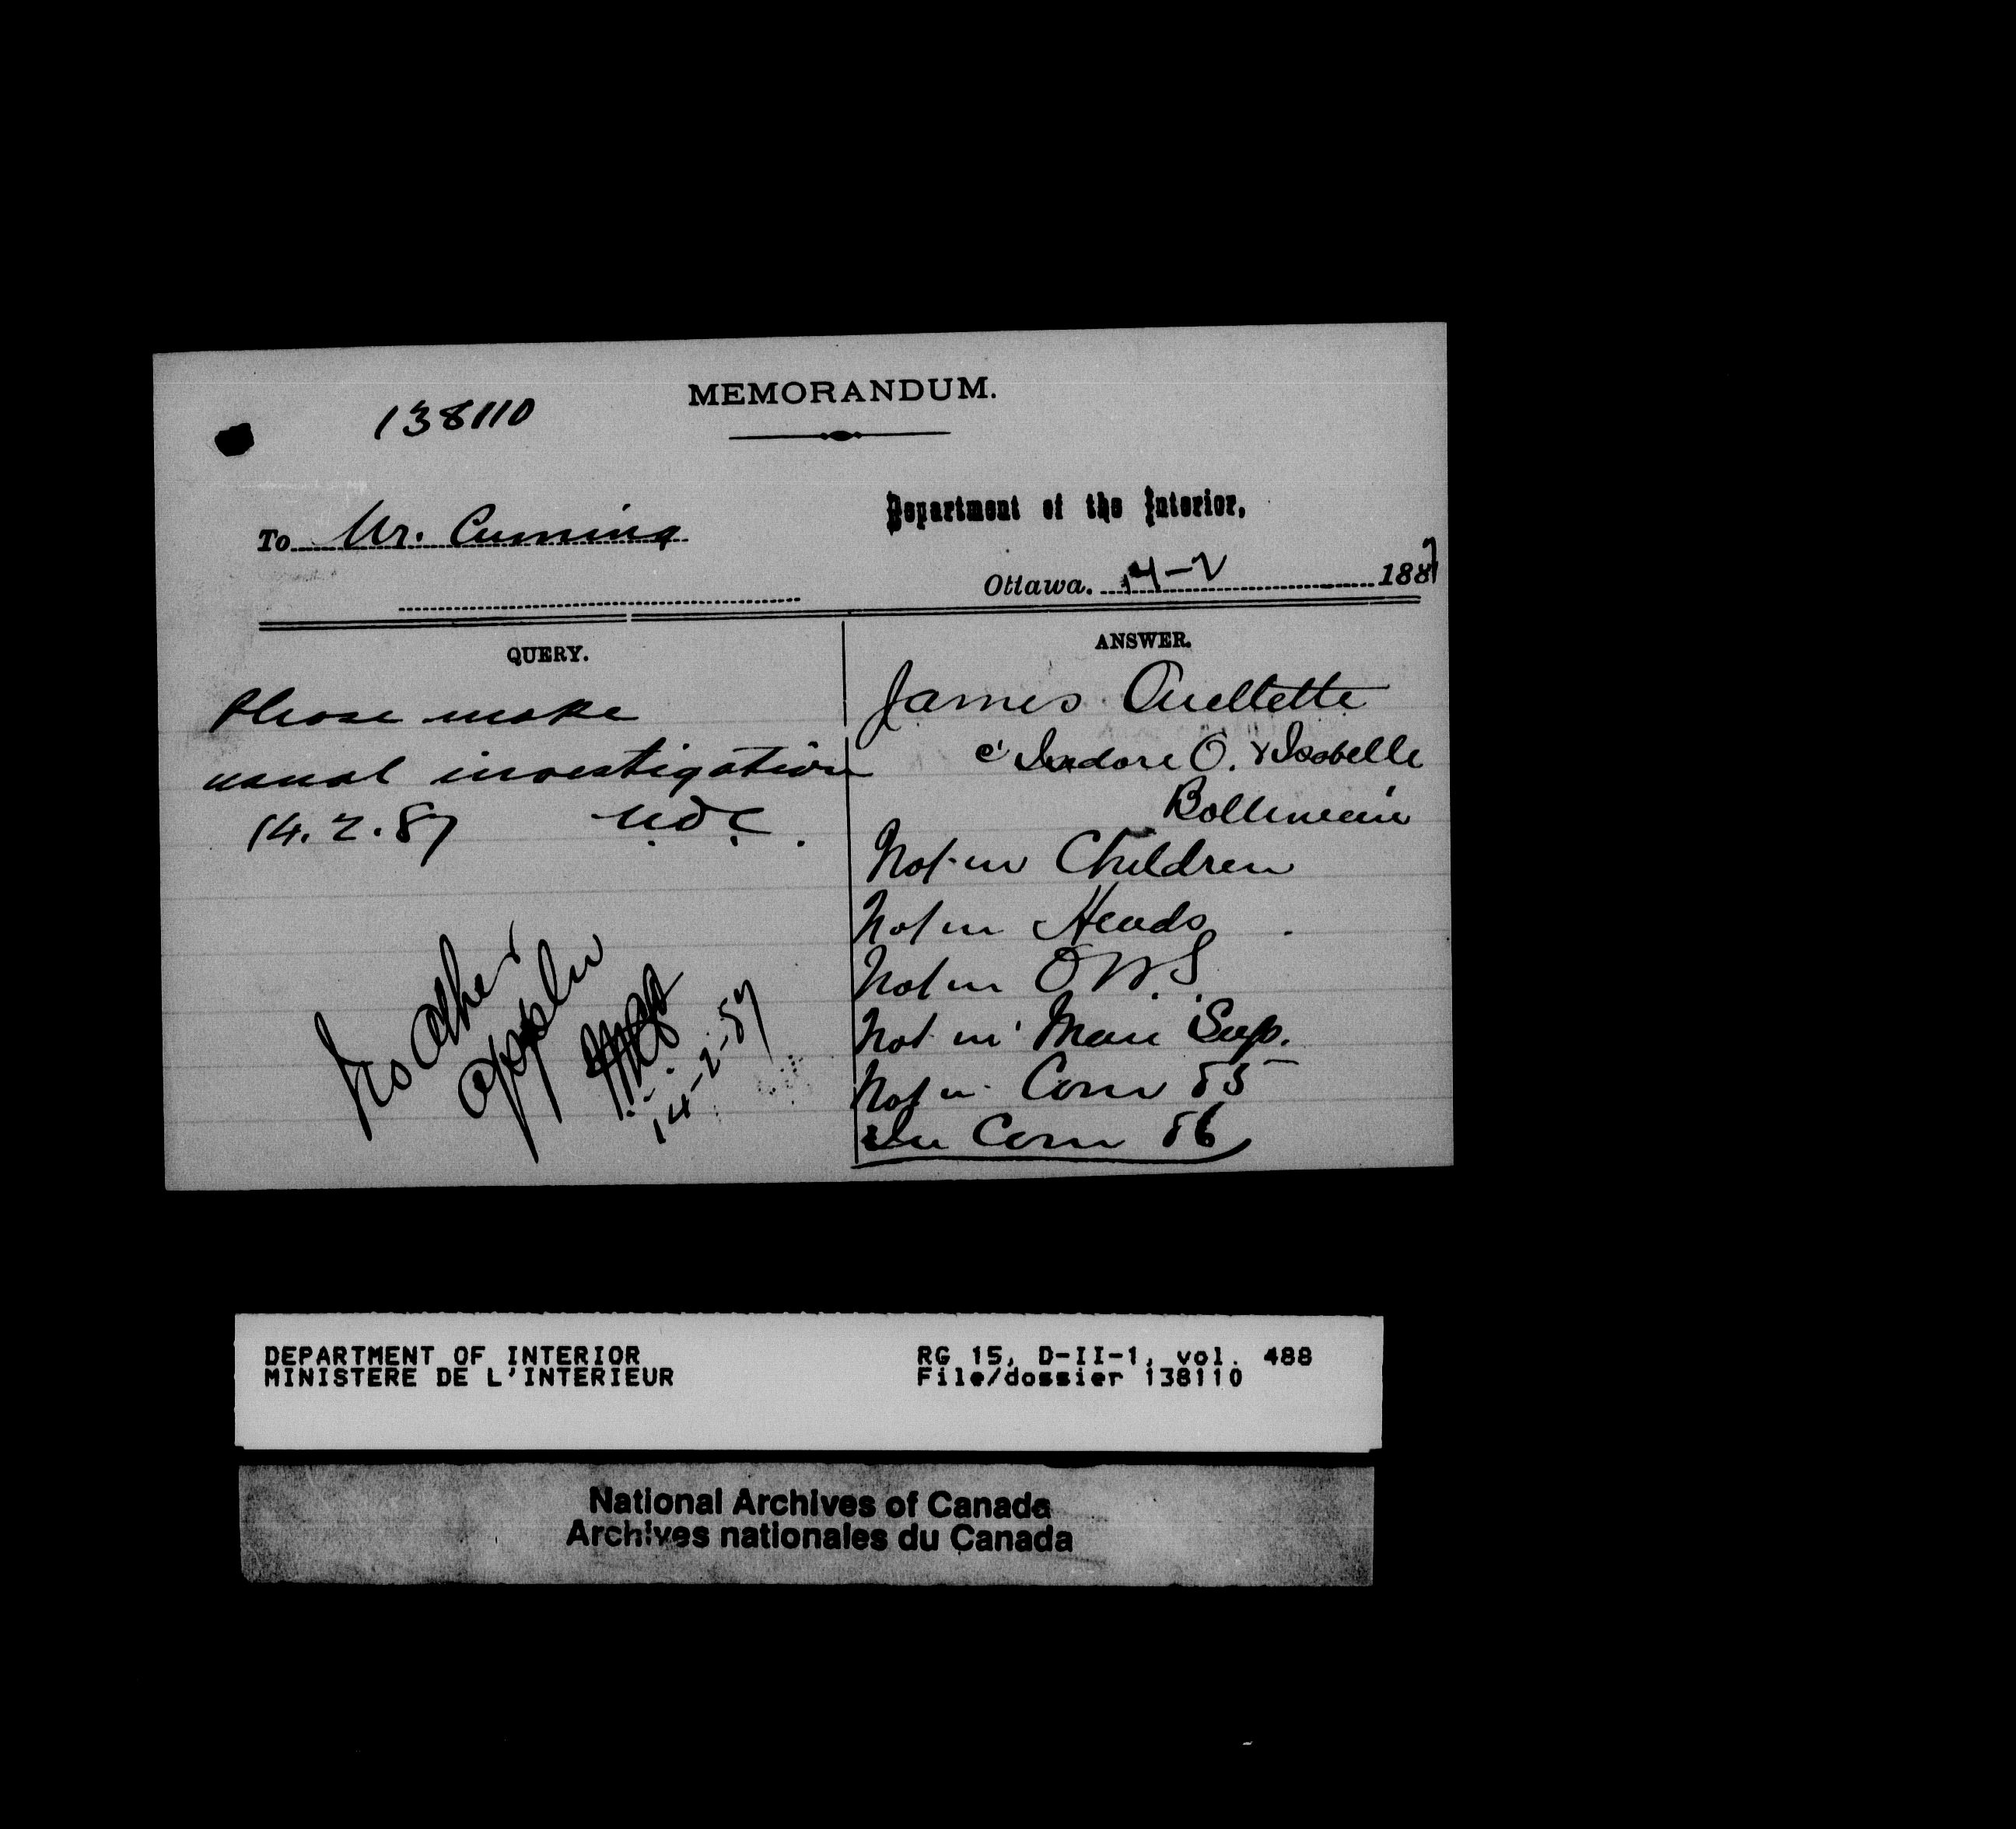 138110
MEMORANDUM.
To Mr. Cuming
Department of the Interior,
Ottawa. 14-2 1887
QUERY.
Please make
usual investigation
14.2.87
No other
appln
14-2-87
ANSWER.
James Ouellette
c' Isadore O. & Isabelle
Not in Children
Not in Heads
Not in O.W.S.
Not in Man Sup.
Not in Com 85
In Com 86
DEPARTMENT OF INTERIOR
MINISTERE DE L'INTERIEUR
RG 15, D-II-1, vol. 488
File/dossier 138110
National Archives of Canada
Archives nationales du Canada